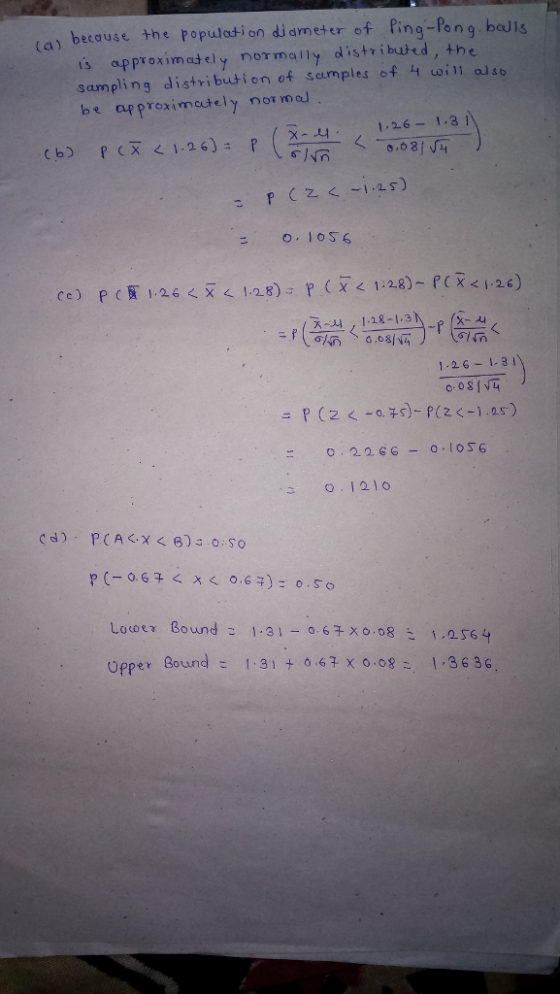 (a) because the population diameter of Ping-Pong balls
is approximately normally distributed, the
sampling distribution of samples of 4 will also
be approximately normal.
(b) P(x̄ < 1.26) = P( (x̄-μ)/(σ/√n) < (1.26-1.31)/(0.08/√4) )
= P(Z < -1.25)
= 0.1056
(c) P( 1.26 < x̄ < 1.28) = P(x̄ < 1.28) - P(x̄ < 1.26)
= P( (x̄-μ)/(σ/√n) < (1.28-1.31)/(0.08/√4) ) - P( (x̄-μ)/(σ/√n) <
(1.26-1.31)/(0.08/√4) )
= P(Z < -0.75) - P(Z < -1.25)
= 0.2266 - 0.1056
= 0.1210
(d). P(A < X < B) = 0.50
P(-0.67 < x < 0.67) = 0.50
Lower Bound = 1.31 - 0.67 x 0.08 = 1.2564
Upper Bound = 1.31 + 0.67 x 0.08 = 1.3636.